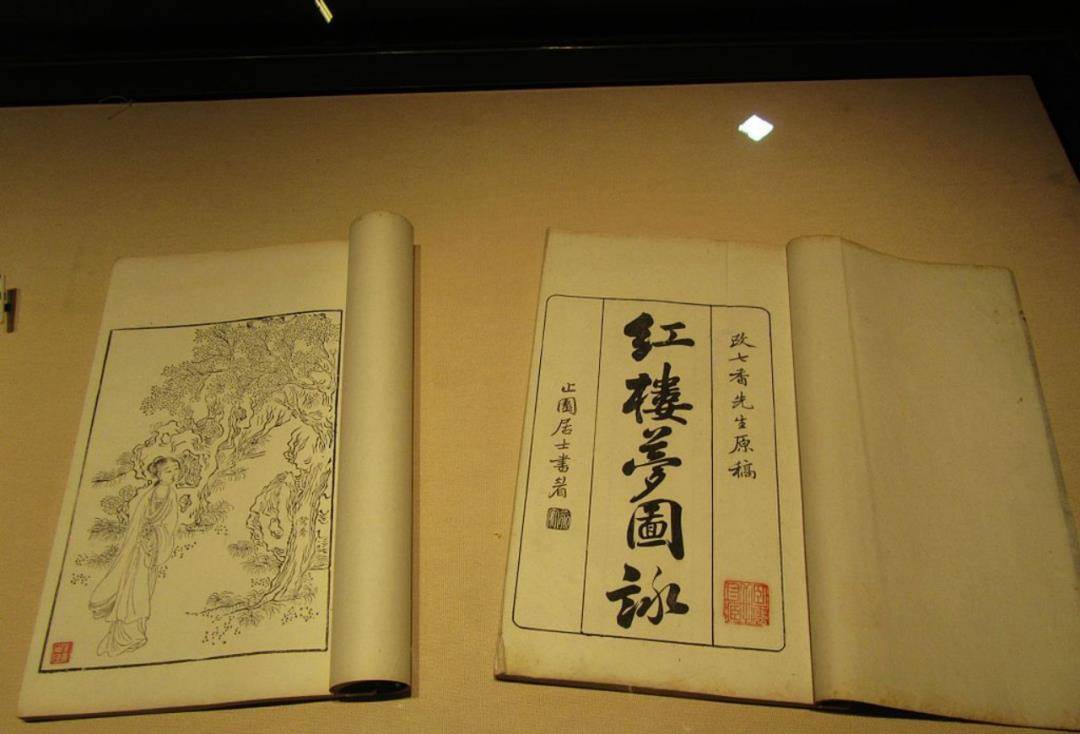 改七香先生原稿
紅樓夢圖詠
止園居士書